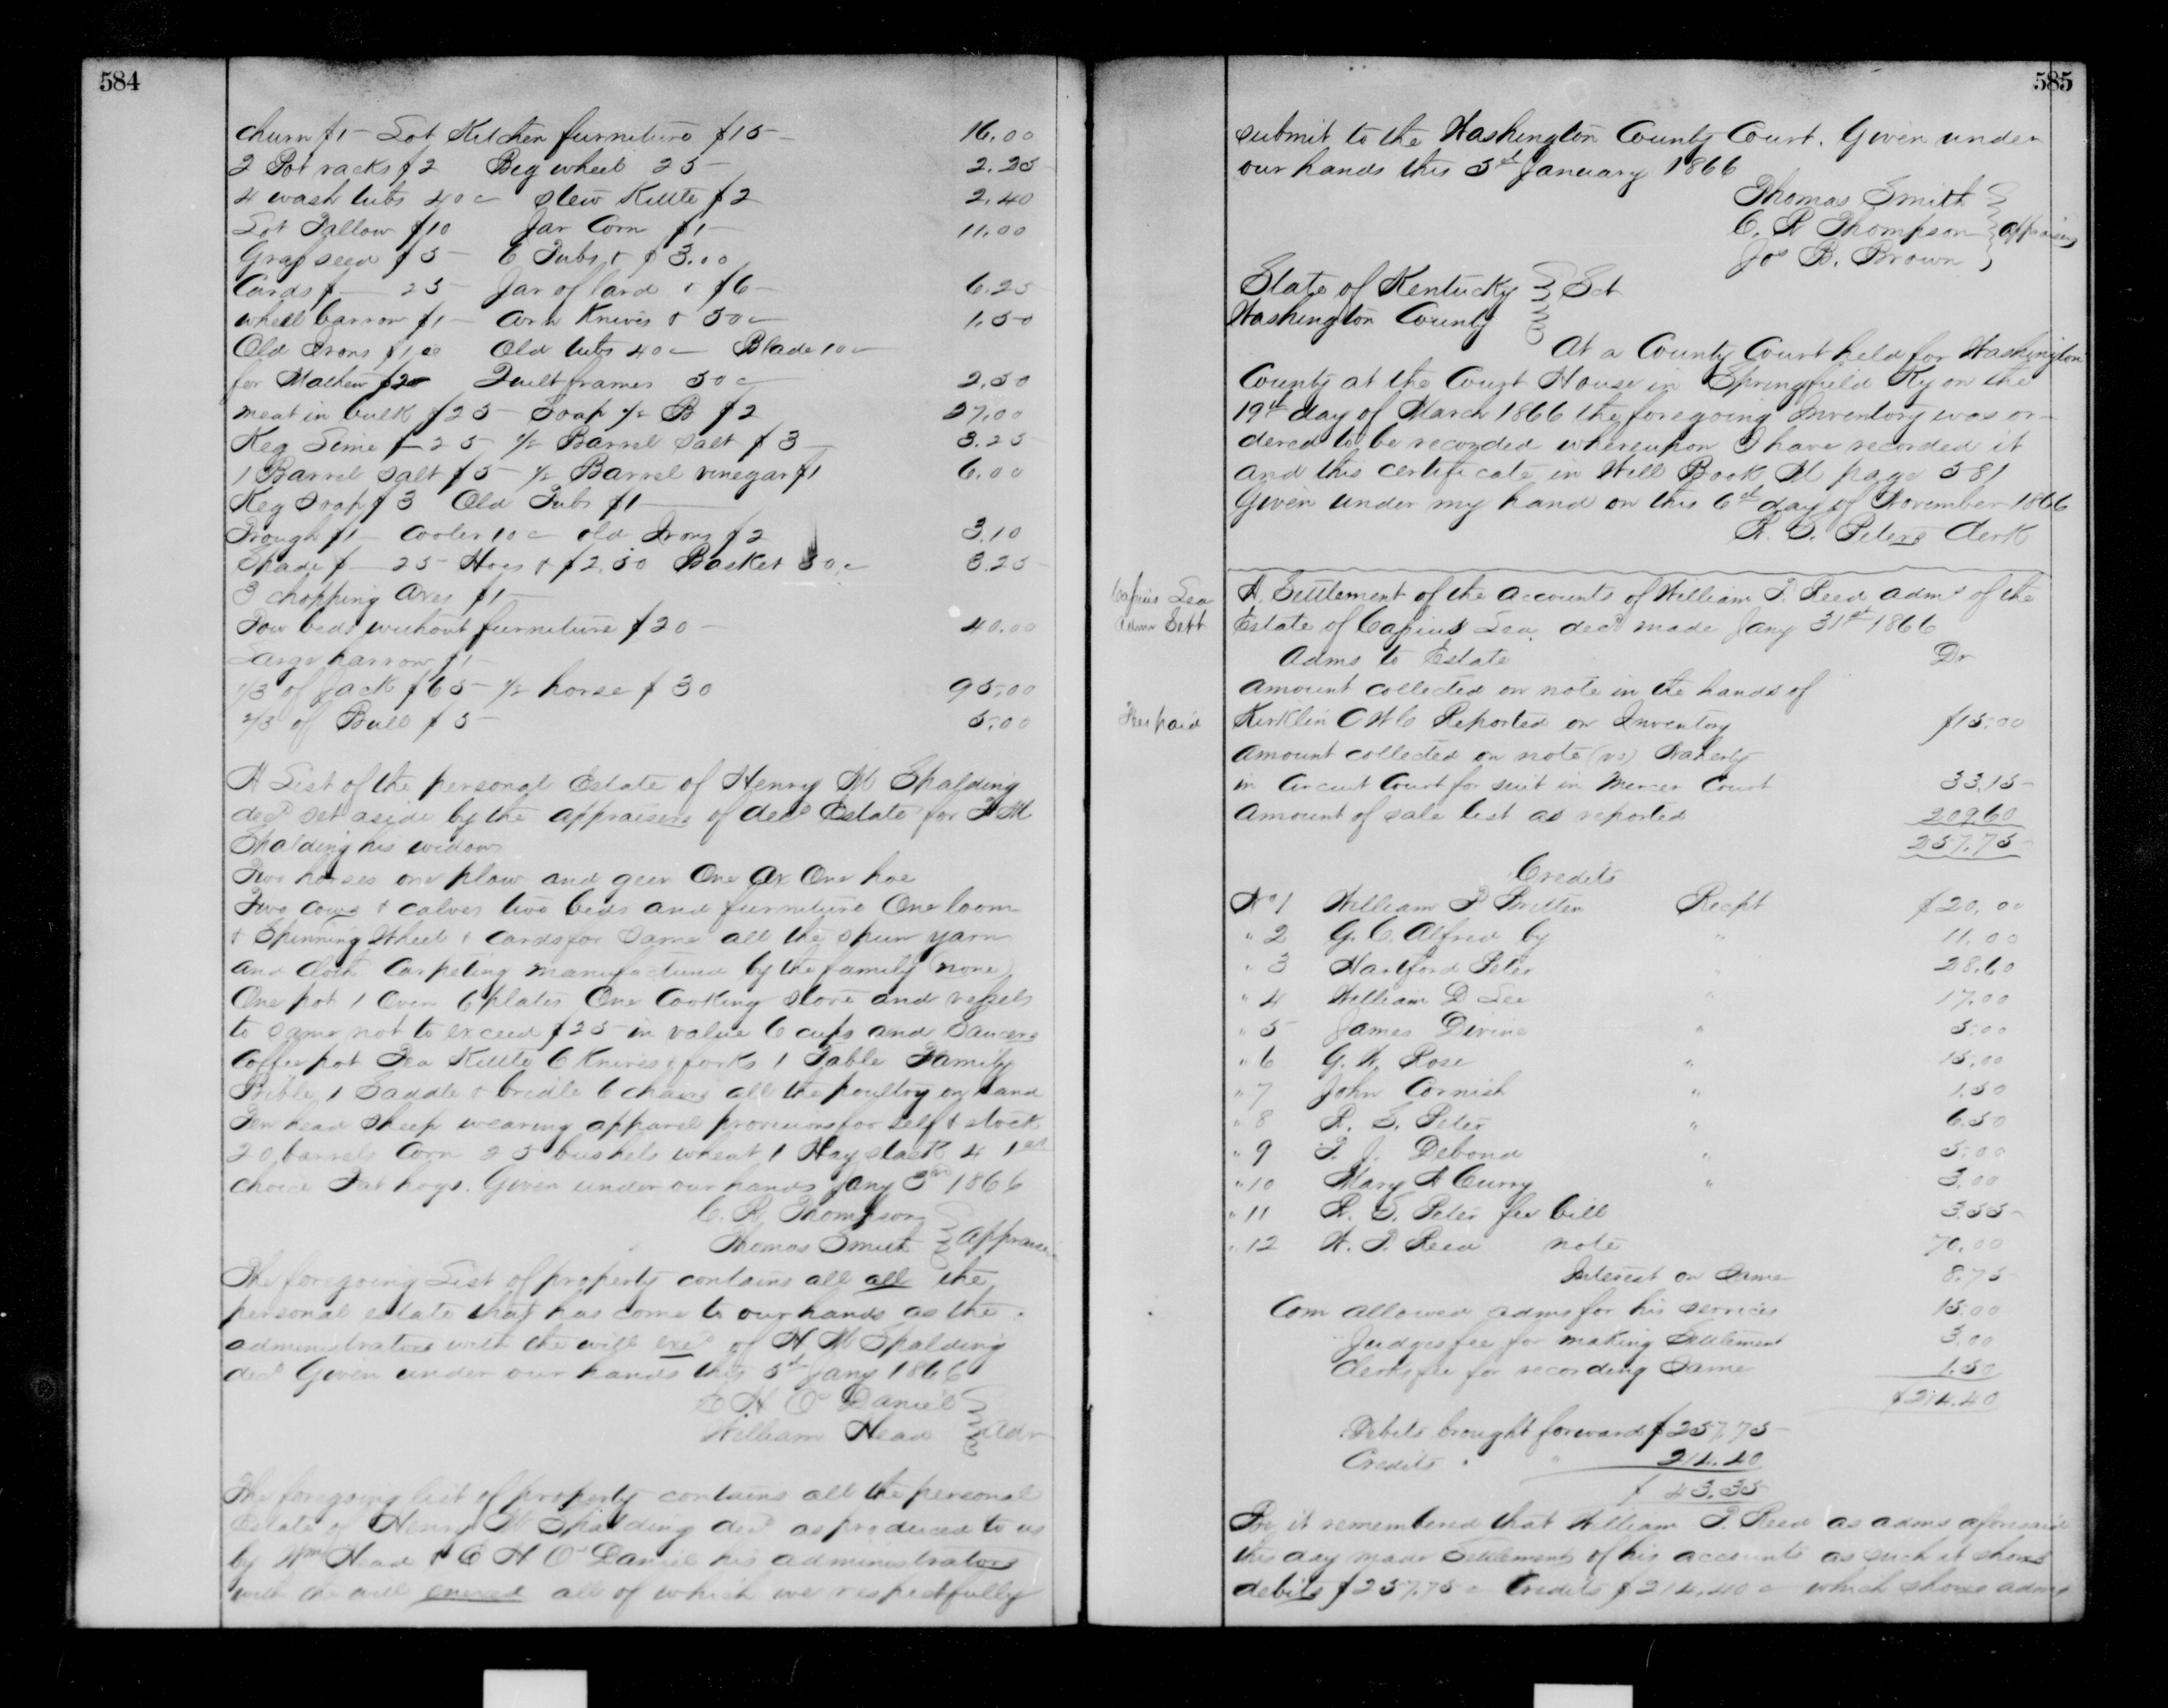 584
churn $1 – Lot Kitchen furniture $15 – 16.00
2 Pot racks $2 Big wheel 25 – 2.25
4 wash tubs 40c Stew Kittle $2 2.40
Lot Tallow $10 Jar Corn $1 – 11.00
Grass seed $5 – 6 Tubs + $3.00
Cards $ – 25 Jar of lard + $6 – 6.25
wheel barrow $1 – Knives + 50c 1.50
Old Irons $1.00 Old tubs 40c – Blade 10c
for $2 Quilt frames 50c 2.50
meat in bulk $25 – Soap ½ B $2 27.00
Keg Lime $ – 25 ½ Barrel Salt $3 – 3.25
1 Barrel Salt $5 – ½ Barrel vinegar $1 6.00
Keg Soap $3 Old Tubs $1 –
Trough $1 – Cooler 10c old Irons $2 3.10
Spade $ – 25 Hoes + $2.50 Basket 50c 3.25
3 chopping Axes $1 –
Tow beds without furniture $20 – 40.00
Large harrow $1 –
1/3 of Jack $65 – ½ horse $30 95.00
2/3 of Bull $5 – 5.00
A List of the personal Estate of Henry M Spalding
decd set aside by the appraisers of decd Estate for
Spalding his widow
Two horses one plow and geer One Ax One hoe
Two cows + calves two beds and furniture One loom
+ Spinning Wheel + Cards for Same all the spun yarn
and cloth Carpeting manufactured by the family (none)
One pot 1 Oven 6 plates One Cooking stove and vessels
to same not to exceed $25 in value 6 cups and Saucers
Coffee pot Tea Kittle 6 Knives + forks 1 Table Family
Bible 1 Saddle + bridle 6 chairs all the poultry on hand
Ten head sheep wearing apparel provisions for self + stock
20 barrels Corn 25 bushels wheat 1 Hay stack 4 1st
choice Fat hogs. Given under our hands Jany 3rd 1866
C. R. Thompson
Thomas Smith } appraisers
The foregoing List of property contains all all the
personal estate that has come to our hands as the
administrators with the will of H M Spalding
decd Given under our hands this 5th Jany 1866
C H O Daniel
William Head } Adr
The foregoing list of property contains all the personal
Estate of Henry M Spalding decd as produced to us
by Wm Head + C H O Daniel his administrators
with the will all of which we respectfully
585
submit to the Washington County Court. Given under
our hands this 5th January 1866
Thomas Smith
C. R Thompson } appraisers
Jos B. Brown
State of Kentucky } Sct
Washington County
At a County Court held for Washington
County at the Court House in Springfield Ky on the
19th day of March 1866 the foregoing Inventory was or-
dered to be recorded whereupon I have recorded it
and this certificate in Will Book M page 581
Given under my hand on this 6th day of November 1866
R. S. Peters Clerk
Capius Lea
Admr Sett
A Settlement of the accounts of William T. Reed adms of the
Estate of Capius Lea decd made Jany 31st 1866
Adms to Estate Dr
amount collected on note in the hands of
Fees paid
Kirklin C W C Reported on Inventory $15.00
amount collected on note (vs)
in Circuit Court for suit in Mercer Court 33.15
Amount of sale list as reported 209.60
257.75
Credits
No 1 William P Britten Recpt $20.00
" 2 G. C. Alfred by " 11.00
" 3 Hartford Peter " 28.60
" 4 William D Lee " 17.00
" 5 James Divine " 5.00
" 6 G. W. Rose " 15.00
" 7 John Cornish " 1.50
" 8 R. S. Peter " 6.50
" 9 T. J. Debond " 5.00
" 10 Mary A Curry " 3.00
" 11 R. S. Peter fee bill 3.55
" 12 W. T. Reed note 70.00
Interest on Same 8.75
Com allowed adms for his services 15.00
Judges fee for making Settlement 3.00
Clerks fee for recording Same 1.50
$214.40
Debits brought forward $257.75
Credits " " 214.40
$43.35
Be it remembered that William T. Reed as adms aforesaid
this day made Settlement of his accounts as such it shows
debits $257.75c Credits $214.40c which shows adms